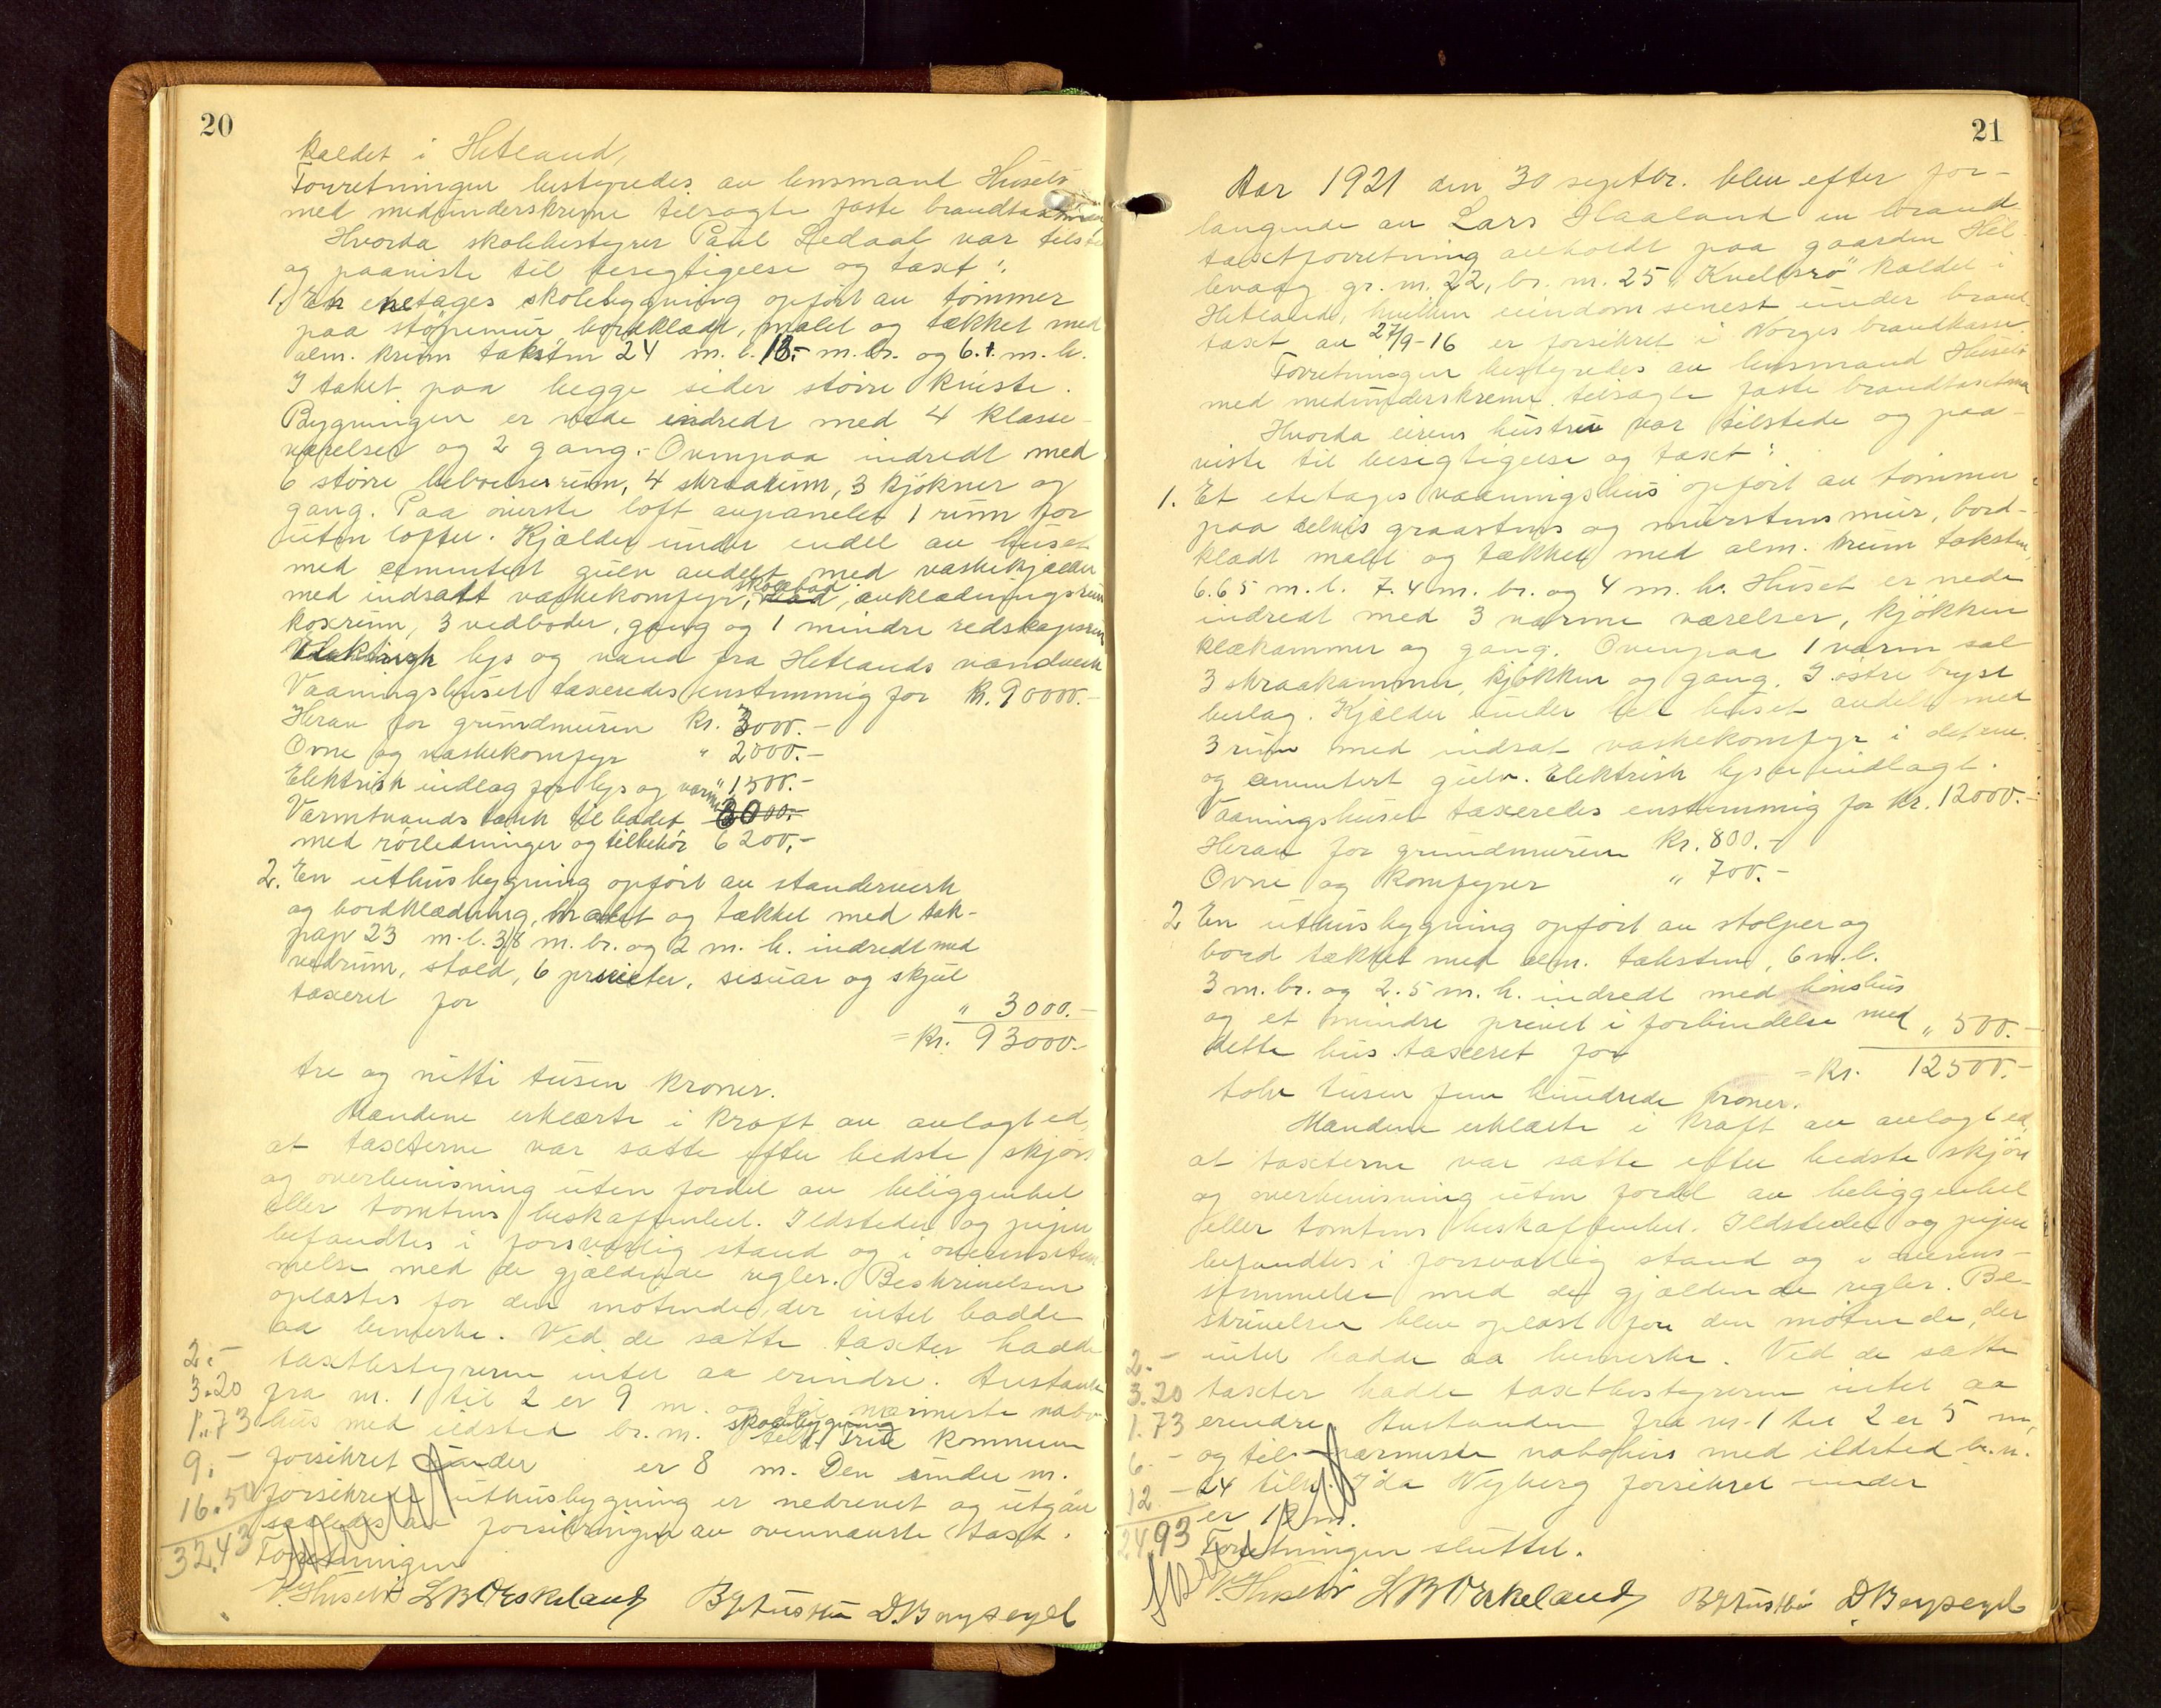 20
kaldet i Hetland,
Forretningen bestyredes av lensmand Husebø
med medunderskrevne tilsagte faste brandtaxtmænd
Hvorda skolebestyrer Paul Ledaal var tilstede
og paaviste til besigtigelse og taxt:
1. En enetages skolebygning opført av tømmer
paa støpemur, bordklædt, malet og tækket med
alm. krum taksten 24 m. l. 13.- m. br. og 6.1. m. h.
I taket paa begge sider større kviste.
Bygningen er nede indredt med 4 klasse-
værelser og 2 gang. - Ovenpaa indredt med
6 større beboelsesrum, 4 skraarum, 3 kjøkner og
gang. Paa øverste loft avpanelet 1 rum for
uten lofter. Kjælder under endel av huset
med cementert gulv avdelt med vaskekjælder
med indsatt vaskekomfyr, skolebad, avklædningsrum
koxrum, 3 vedboder, gang og 1 mindre redskapsrum
Elektrisk lys og vand fra Hetlands vandverk
Vaaningshuset taxeredes enstemmig for kr. 90000.-
Herav for grundmuren kr. 3000.-
Ovne og vaskekomfyr " 2000.-
Elektrisk indlæg for lys og varme " 1500.-
Varmtvands tank til badet 3000.-
med rørledninger og tilbehør 6200.-
2. En uthusbygning opført av standerverk
og bordklædning, malet og tækket med tak-
pap 23 m. l. 3,8 m. br. og 2 m. h. indredt med
vedrum, stald, 6 priveter, sisvar og skjul
taxeret for " 3000.-
= Kr. 93000.-
tre og nitti tusen kroner.
Mændene erklærte i kraft av avlagt ed,
at taxterne var satte efter bedste skjøn
og overbevisning uten fordel av beliggenhet
eller tomtens beskaffenhet. Ildsteder og piper
befandtes i forsvarlig stand og i overensstem
melse med de gjældende regler. Beskrivelsen
oplæstes for den møtende, der intet hadde
aa bemerke. Ved de satte taxter hadde
2.-
taxtbestyreren intet aa erindre. Avstanden
3.20
fra nr. 1 til 2 er 9 m. og til nærmeste nabo
1.73
hus med ildsted br. nr. skolebygning tilh. kommune
9.-
forsikret under er 8 m. Den under nr.
16.50
forsikrede uthusbygning er nedrevet og utgaar
saaledes av forsikringen av ovennævnte taxt.
32.43
Forretningen
V. Husebø L B Erkeland B Austbø D. Bergsegel
21
Aar 1921 den 30 septbr. blev efter for-
langende av Lars Haaland en brand
taxtforretning avholdt paa gaarden Hil-
levaag gr. nr. 22, br. nr. 25 "Kveldsro" kaldet i
Hetland, hvilken eiendom senest under brand
taxt av 27/9-16 er forsikret i Norges brandkasse.
Forretningen bestyredes av lensmand Husebø
med medunderskrevne tilsagte faste brandtaxtmænd
Hvorda eierens hustru var tilstede og paa-
viste til besigtigelse og taxt:
1. Et etetages vaaningshus opført av tømmer
paa delvis graastens og murstens mur, bord-
klædt malet og tækket med alm. krum taksten,
6.65 m. l. 7.4 m. br. og 4 m. h. Huset er nede
indredt med 3 varme værelser, kjøkken
klækammer og gang. Ovenpaa 1 varm sal
3 skraakammer, kjøkken og gang. I østre bryst
beslag. Kjælder under hele huset avdelt med
3 rum med indsat vaskekomfyr i det ene.
og cementert gulv. Elektrisk lys er indlagt.
Vaaningshuset taxeredes enstemmig for kr. 12000.-
Herav for grundmuren kr. 800.-
Ovne og komfyrer " 700.-
2 En uthusbygning opført av stolper og
bord tækket med alm. taksten, 6 m. l.
3 m. br. og 2.5 m. h. indredt med hønshus
og et mindre privet i forbindelse med
dette hus taxeret for " 500.-
= Kr. 12500.-
tolv tusen fem hundrede kroner.
Mændene erklærte i kraft av avlagt ed,
at taxterne var satte efter bedste skjøn
og overbevisning uten fordel av beliggenhet
eller tomtens beskaffenhet. Ildsteder og piper
befandtes i forsvarlig stand og i overens-
stemmelse med de gjældende regler. Be-
skrivelsen blev oplæst for den møtende, der
2.-
intet hadde aa bemerke. Ved de satte
3.20
taxter hadde taxtbestyreren intet aa
1.73
erindre. Avstanden fra nr. 1 til 2 er 5 m,
6.-
og til nærmeste nabohus med ildsted br. nr.
12.-
24 tilh. Ida Nyberg forsikret under
er 12 m.
24.93
Forretningen sluttet.
V. Husebø L B Erkeland B Austbø D. Bergsegel